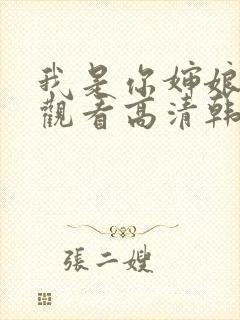 我是你婶娘
觀看高清韩
張二嫂